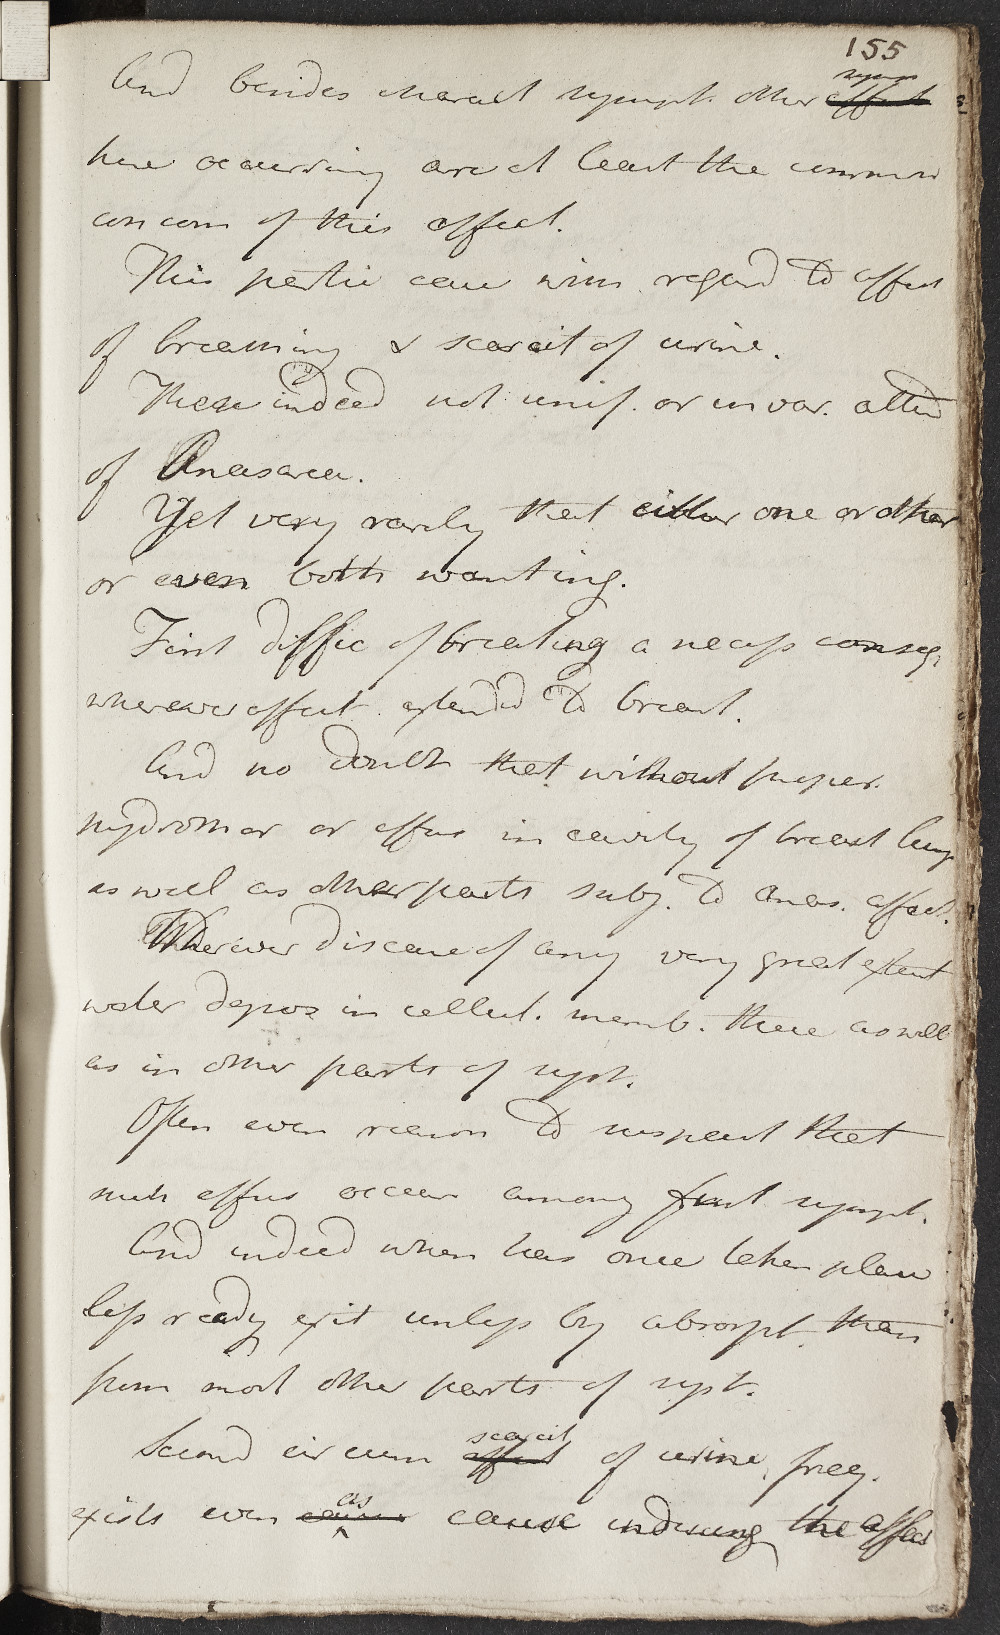 155
And besides charact sympt. other symp ~~affect~~
here occurring are at least the common
concom of this affect.
This partic case wins regard to affect
of breathing & scarcit of urine.
These indeed not unif. or invar. attend
of Anasarca.
Yet very rarely that either one or other
or even both wanting.
First diffic of breathing a necess conseq.
wherever affect extended to breast.
And no doubt that without proper
hydrothor or effus in cavity of breast lungs
as well as other parts subj. to anas. affect.
Wherever disease of any very great extent
water depos in cellul. memb. there as well
as in other parts of syst.
Often even reason to suspect that
such effus occur among first sympt.
And indeed when has once taken place
less ready exit unless by absorpt. than
from most other parts of syst.
Second circum scarcit ~~affect~~ of urine, freq.
exists even as cause inducing the affect